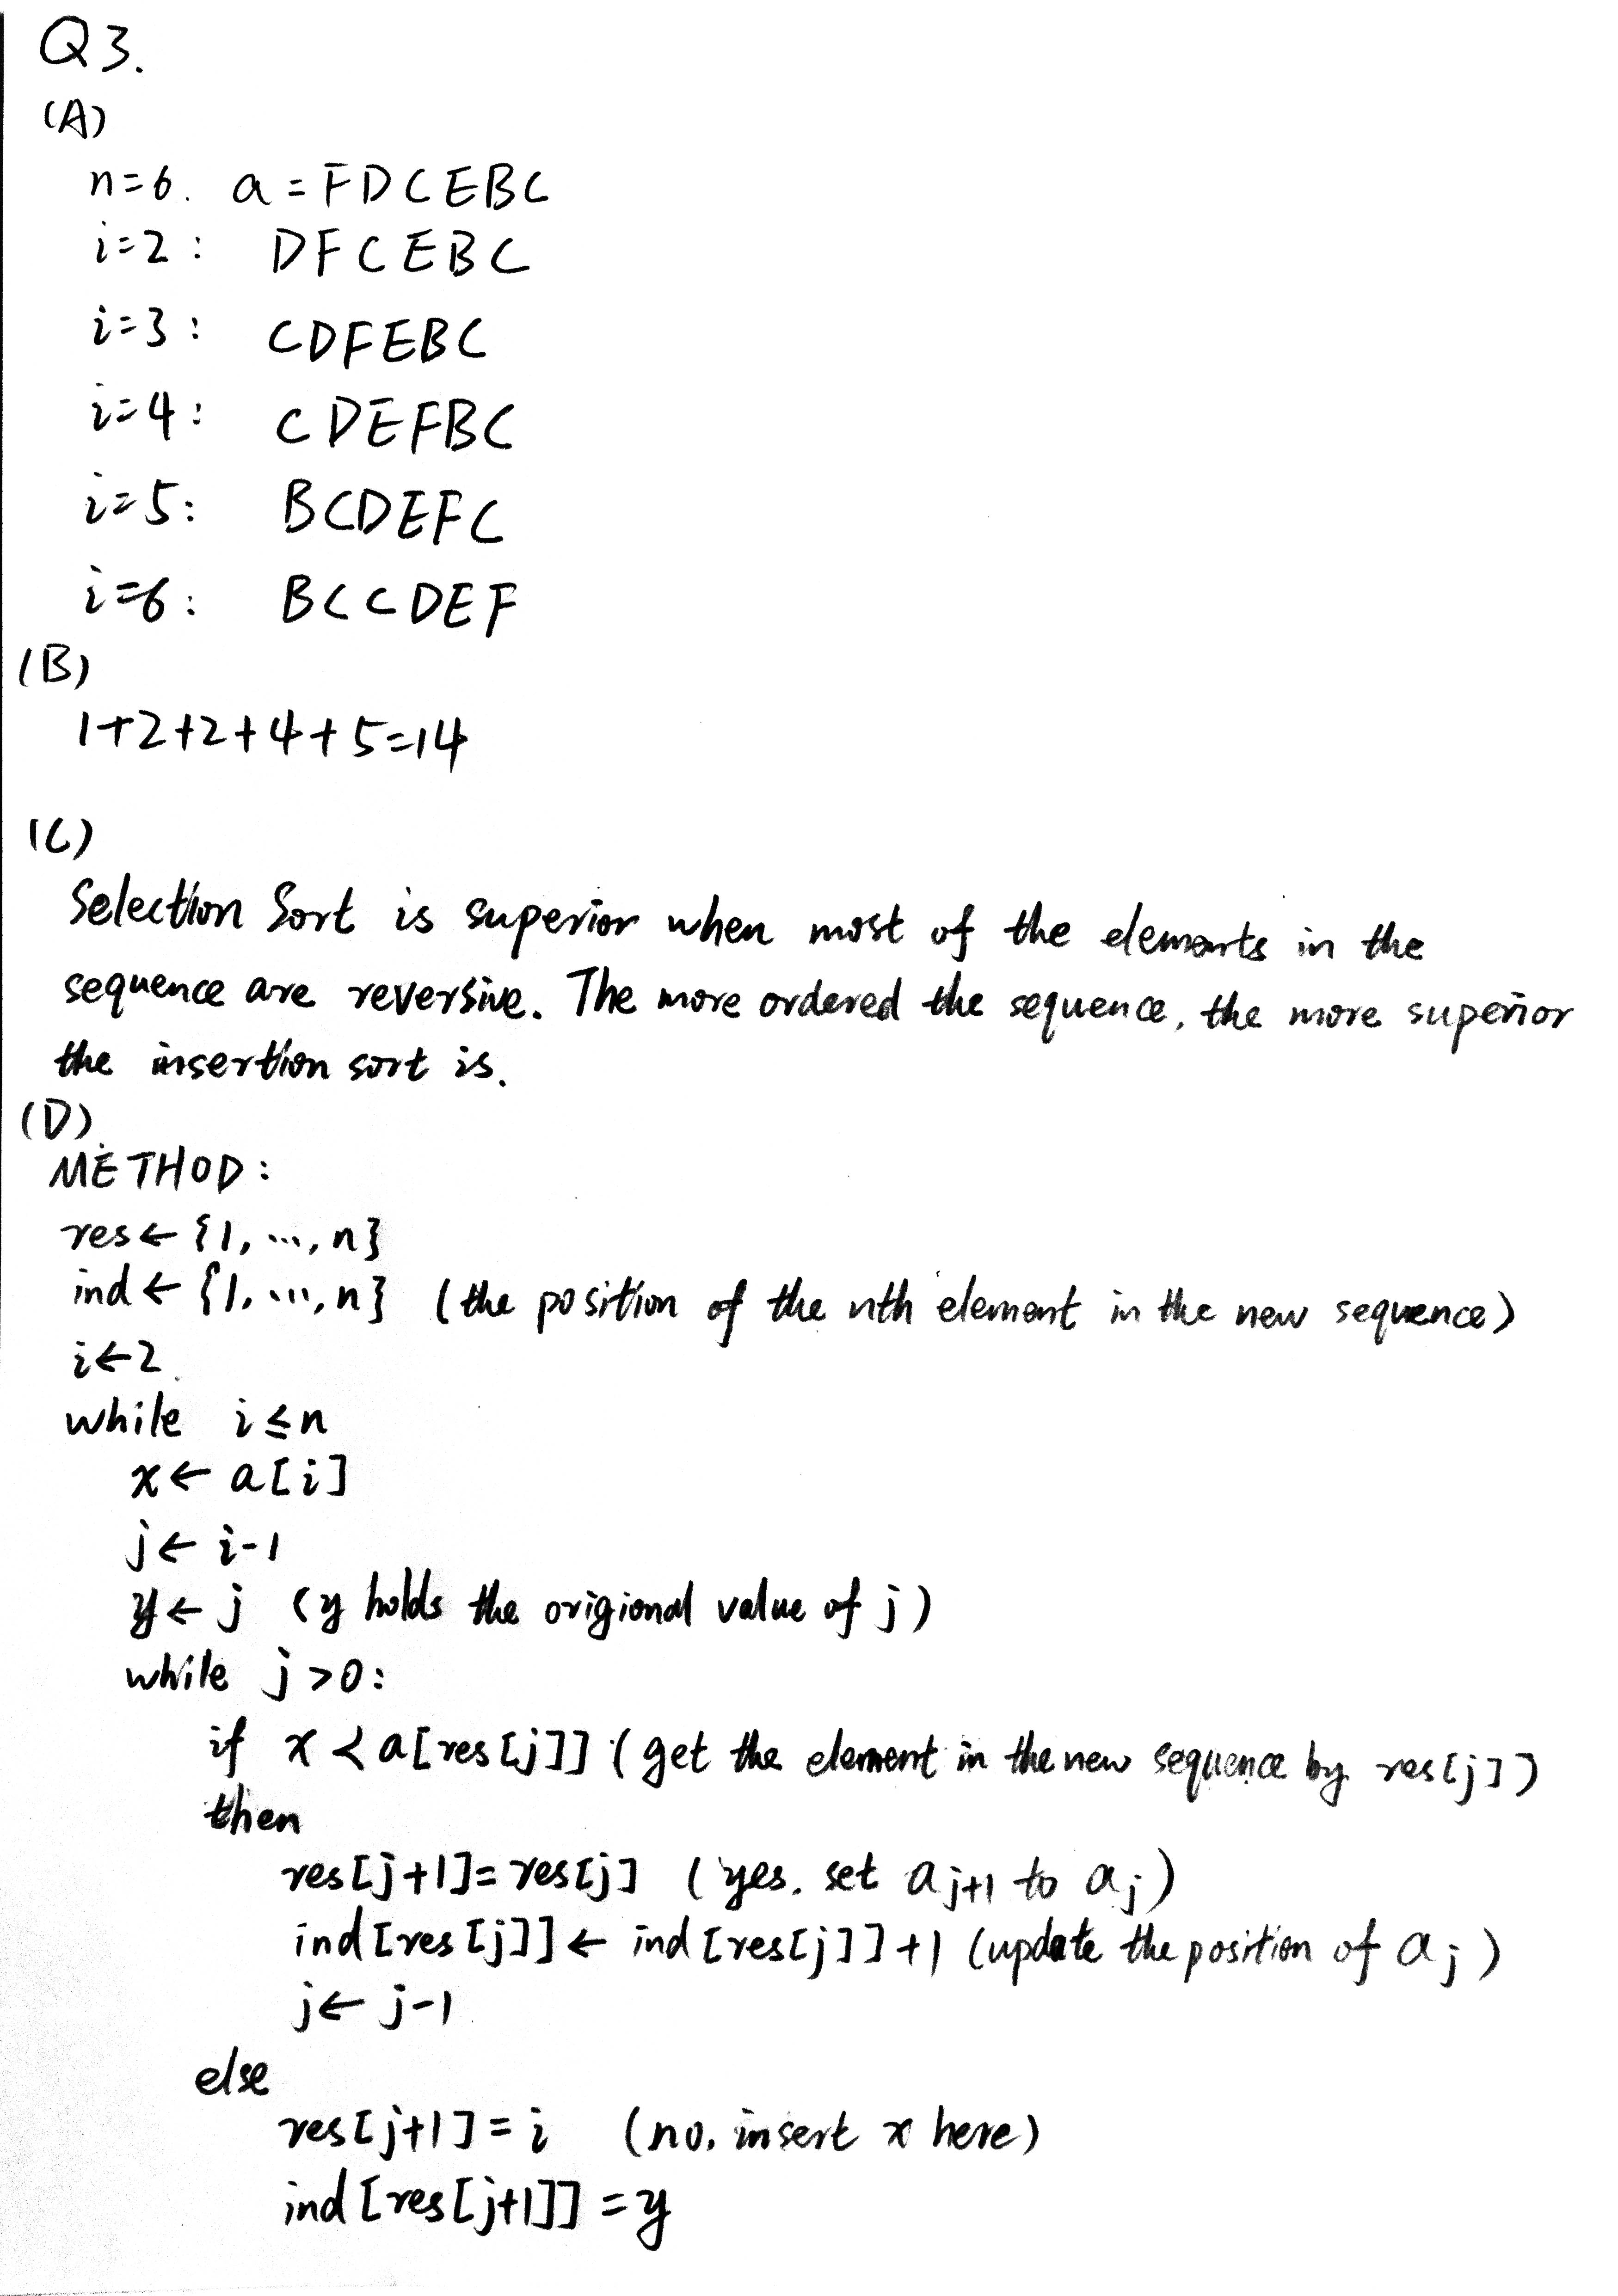 Q3.
(A)
n=6. a=FDCEBC
i=2: DFCEBC
i=3: CDFEBC
i=4: CDEFBC
i=5: BCDEFC
i=6: BCCDEF
(B)
1+2+2+4+5=14
(C)
Selection Sort is superior when most of the elements in the
sequence are reversive. The more ordered the sequence, the more superior
the insertion sort is.
(D)
METHOD:
res ← {1, ..., n}
ind ← {1, ..., n} (the position of the nth element in the new sequence)
i ← 2
while i ≤ n
x ← a[i]
j ← i-1
y ← j (y holds the origional value of j)
while j > 0:
if x < a[res[j]] (get the element in the new sequence by res[j])
then
res[j+1] = res[j] (yes. set a_{j+1} to a_j)
ind[res[j]] ← ind[res[j]]+1 (update the position of a_j)
j ← j-1
else
res[j+1] = i (no, insert x here)
ind[res[j+1]] = y